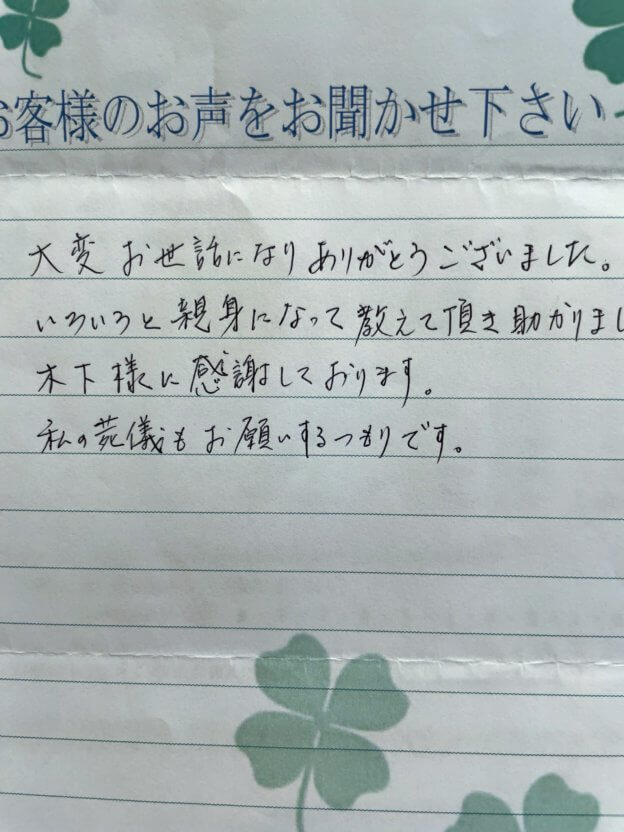 お客様のお声をお聞かせ下さい
大変お世話になりありがとうございました。
いろいろと親身になって教えて頂き助かりまし
木下様に感謝しております。
私の葬儀もお願いするつもりです。